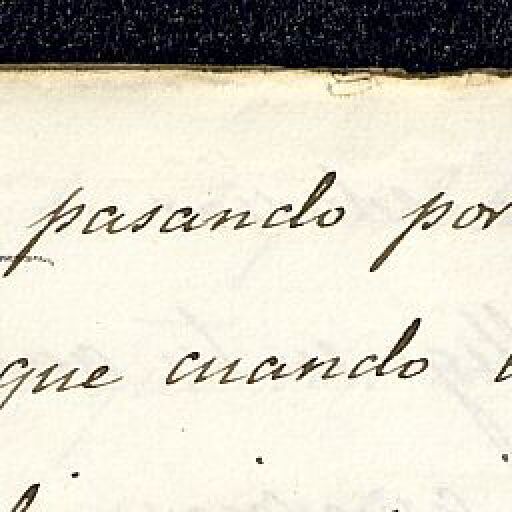 pasando por
que cuando